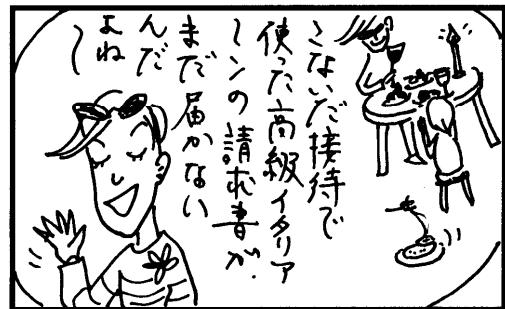 こないだ接待で
使った高級イタリア
ンの請求書が
まだ届かない
んだ
よね
〜